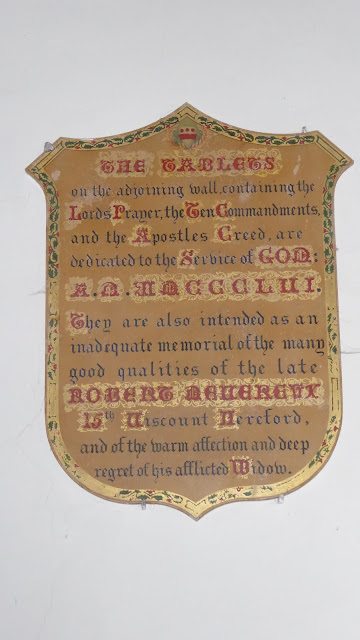 THE TABLETS
on the adjoining wall, containing the
Lords Prayer, the Ten Commandments,
and the Apostles Creed, are
dedicated to the Service of GOD:
A.D. MDCCCLVI.
They are also intended as an
inadequate memorial of the many
good qualities of the late
ROBERT DEVEREUX
15th Viscount Hereford,
and of the warm affection and deep
regret of his afflicted Widow.